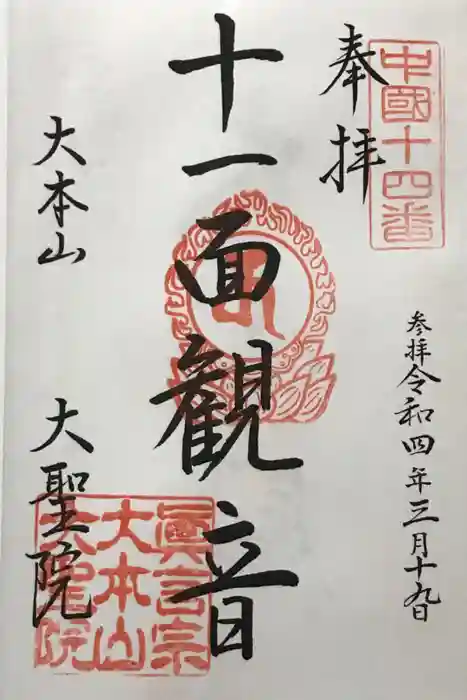 奉拝
中國十四番
参拝令和四年三月十九日
十一面観音
大本山
大聖院
眞言宗
大本山
大聖院